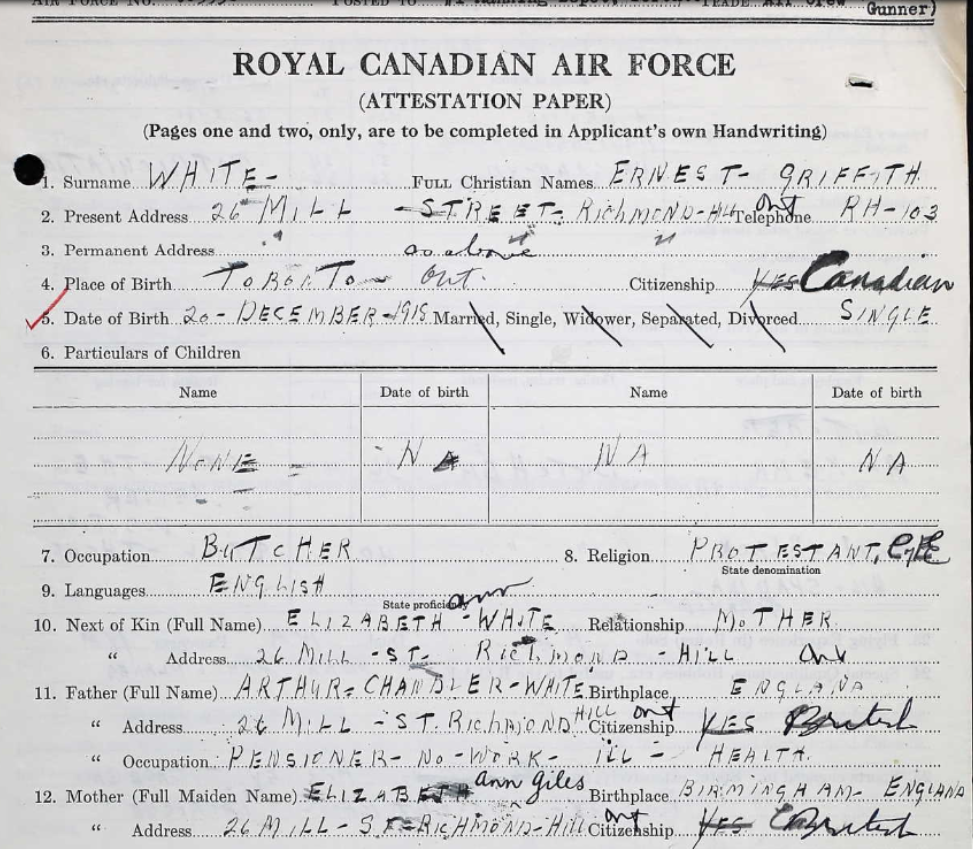 POSTED TO #1 Manning Depot, TRADE Air Crew
Gunner)
ROYAL CANADIAN AIR FORCE
(ATTESTATION PAPER)
(Pages one and two, only, are to be completed in Applicant's own Handwriting)
1. Surname WHITE- FULL Christian Names ERNEST- GRIFFITH
2. Present Address 26 MILL -STREET- RICHMOND-Hill Ont Telephone RH-103
3. Permanent Address as above
4. Place of Birth TORONTO Ont. Citizenship YES Canadian
5. Date of Birth 20-DECEMBER-1915 Married, Single, Widower, Separated, Divorced SINGLE
6. Particulars of Children
Name Date of birth Name Date of birth
NONE - NA NA NA
7. Occupation BUTCHER 8. Religion PROTESTANT, C of E
State denomination
9. Languages ENGLISH
State proficiency
10. Next of Kin (Full Name) ELIZABETH ann -WHITE Relationship MOTHER
" Address 26 MILL -ST- RICHMOND - HILL Ont
11. Father (Full Name) ARTHUR-CHANDLER-WHITE Birthplace ENGLAND
" Address 26 MILL -ST. RICHMOND HILL Ont Citizenship YES British
" Occupation PENSIONER- NO-WORK- ILL - HEALTH.
12. Mother (Full Maiden Name) ELIZABETH ann Giles Birthplace BIRMINGHAM- ENGLAND
" Address 26 MILL- ST-RICHMOND-HILL Ont Citizenship YES British